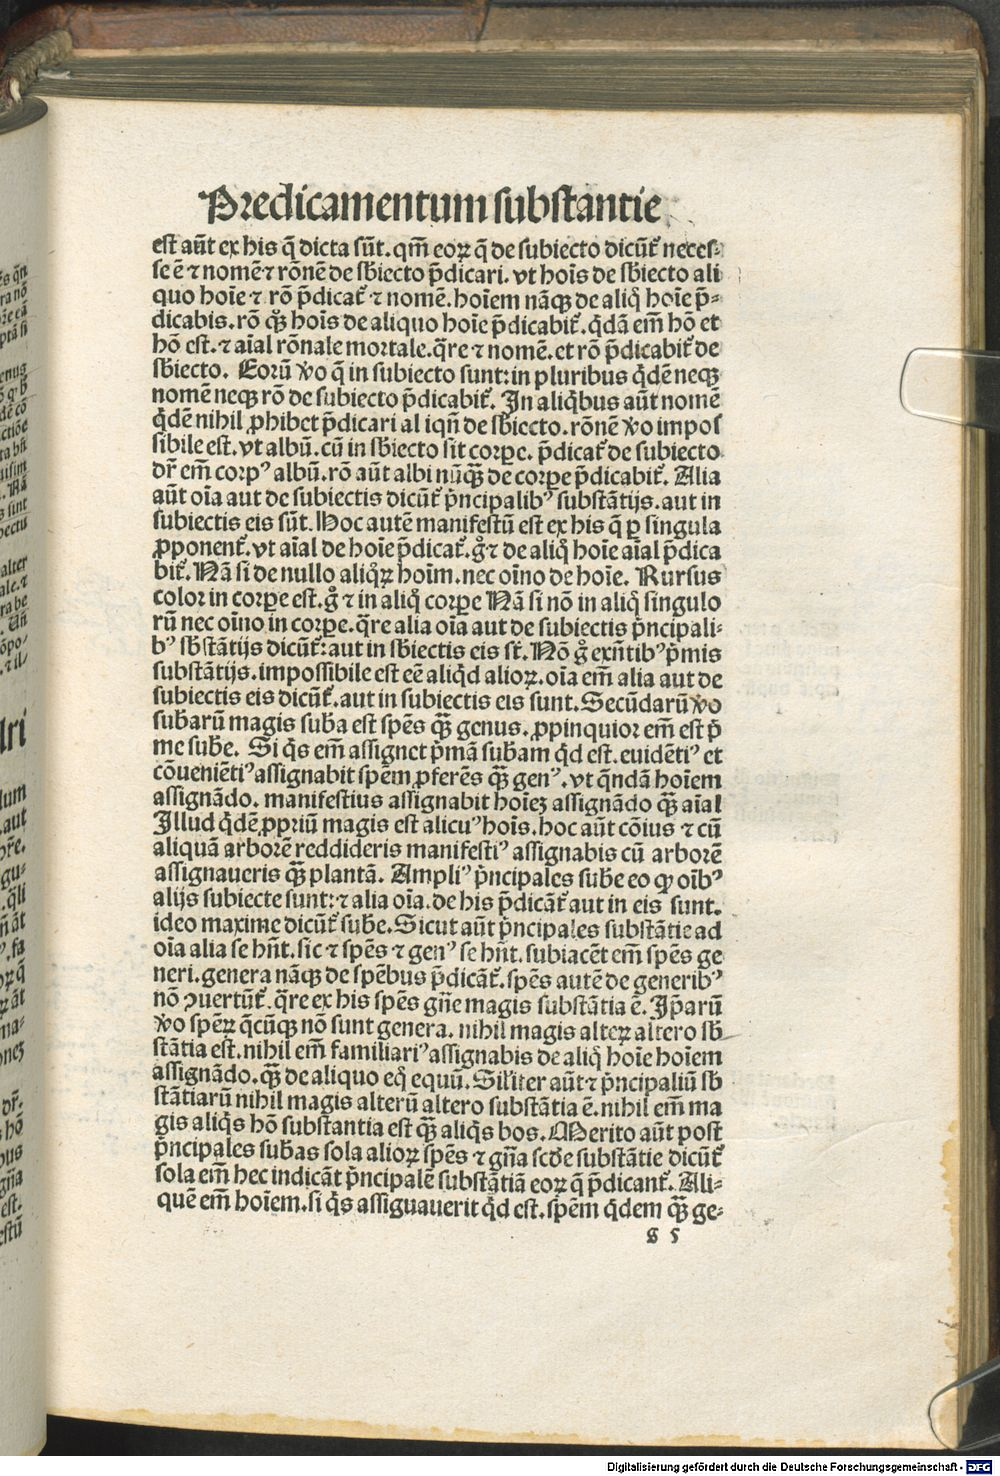 Predicamentum substantie
est aūt ex his q̄ dicta sūt. qm̄ eoꝝ q̄ de subiecto dicūt̉ neces-
se ē ⁊ nomē ⁊ rōnē de sb̄iecto p̄dicari. vt hoīs de sb̄iecto ali
quo hoīe ⁊ rō p̄dicat̉ ⁊ nomē. hoīem nāqꝫ de aliq̊ hoīe p̄-
dicabis. rō qꝫ̊ hoīs de aliquo hoīe p̄dicabit̉. q̇dā em̄ hō et
hō est. ⁊ aīal rōnale mortale. q̄re ⁊ nomē. et rō p̄dicabit̉ de
sb̄iecto. Eorū v̊o q̄ in subiecto sunt: in pluribus q̇dē neqꝫ
nomē neqꝫ rō de subiecto p̄dicabit̉. In aliq̇bus aūt nomē
q̇dē nihil ꝓhibet p̄dicari al iqn̄ de sb̄iecto. rōnē v̊o impos
sibile est. vt albū. cū in sb̄iecto sit corpe. p̄dicat̉ de subiecto
dr̄ em̄ corpꝰ albū. rō aūt albi nūqꝫ̄ de corpe p̄dicabit̉. Alia
aūt oīa aut de subiectis dicūt̉ ṗncipalibꝰ substātijs. aut in
subiectis eis sūt. Hoc autē manifestū est ex his q̄ ꝑ singula
ꝓponent̉. vt aīal de hoīe p̄dicat̉. g̊ ⁊ de aliq̊ hoīe aīal p̄dica
bit̉. Nā si de nullo aliq̊ꝝ hoīm. nec oīno de hoīe. Rursus
color in corpe est. g̊ ⁊ in aliq̊ corpe Nā si nō in aliq̊ singulo
rū nec oīno in corpe. q̄re alia oīa aut de subiectis ṗncipali-
bꝰ sb̄stātijs dicūt̉: aut in sb̄iectis eis st̄. Nō g̊ exn̄tibꝰ ṗmis
substātijs. impossibile est eē aliq̇d alioꝝ. oīa em̄ alia aut de
subiectis eis dicūt̉. aut in subiectis eis sunt. Secūdarū v̊o
sub̄arū magis sub̄a est spēs qꝫ̄ genus. ꝓpinquior em̄ est ṗ
me sub̄e. Si q̇s em̄ assignet ṗmā sub̄am q̇d est. euidētiꝰ et
cōueniētiꝰ assignabit spēm ꝓferēs qꝫ̄ genꝰ. vt q̄ndā hoīem
assignādo. manifestius assignabit hoīeꝫ assignādo qꝫ̄ aīal
Illud q̇dē ꝓpriū magis est alicuꝰ hoīs. hoc aūt cōius ⁊ cū
aliquā arborē reddideris manifestiꝰ assignabis cū arborē
assignaueris qꝫ̄ plantā. Ampliꝰ ṗncipales sub̄e eo ꝙ oībꝰ
alijs subiecte sunt: ⁊ alia oīa. de his p̄dicāt̉ aut in eis sunt.
ideo maxime dicūt̉ sub̄e. Sicut aūt ṗncipales substātie ad
oīa alia se hn̄t. sic ⁊ spēs ⁊ genꝰ se hn̄t. subiacēt em̄ spēs ge
neri. genera nāqꝫ de spēbus p̄dicāt̉. spēs autē de generibꝰ
nō ꝯuertūt̉. q̄re ex his spēs gn̄e magis substātia ē. Ip̄arū
v̊o speꝝ q̄cūqꝫ nō sunt genera. nihil magis alteꝝ altero sb̄
stātia est. nihil em̄ familiariꝰ assignabis de aliq̊ hoīe hoīem
assignādo. qꝫ̄ de aliquo eq̊ equū. Sil̄iter aūt ⁊ ṗncipaliū sb̄
stātiarū nihil magis alterū altero substātia ē. nihil em̄ ma
gis aliq̇s hō substantia est qꝫ̄ aliq̇s bos. Merito aūt post
ṗncipales sub̄as sola alioꝝ spēs ⁊ gn̄a scd̄e substātie dicūt̉
sola em̄ hec indicāt ṗncipalē substātiā eoꝝ q̄ p̄dicant̉. Ali-
quē em̄ hoīem. si q̇s assignauerit q̇d est. spēm q̇dem qꝫ̄ ge-
g 5
Digitalisierung gefördert durch die Deutsche Forschungsgemeinschaft - DFG